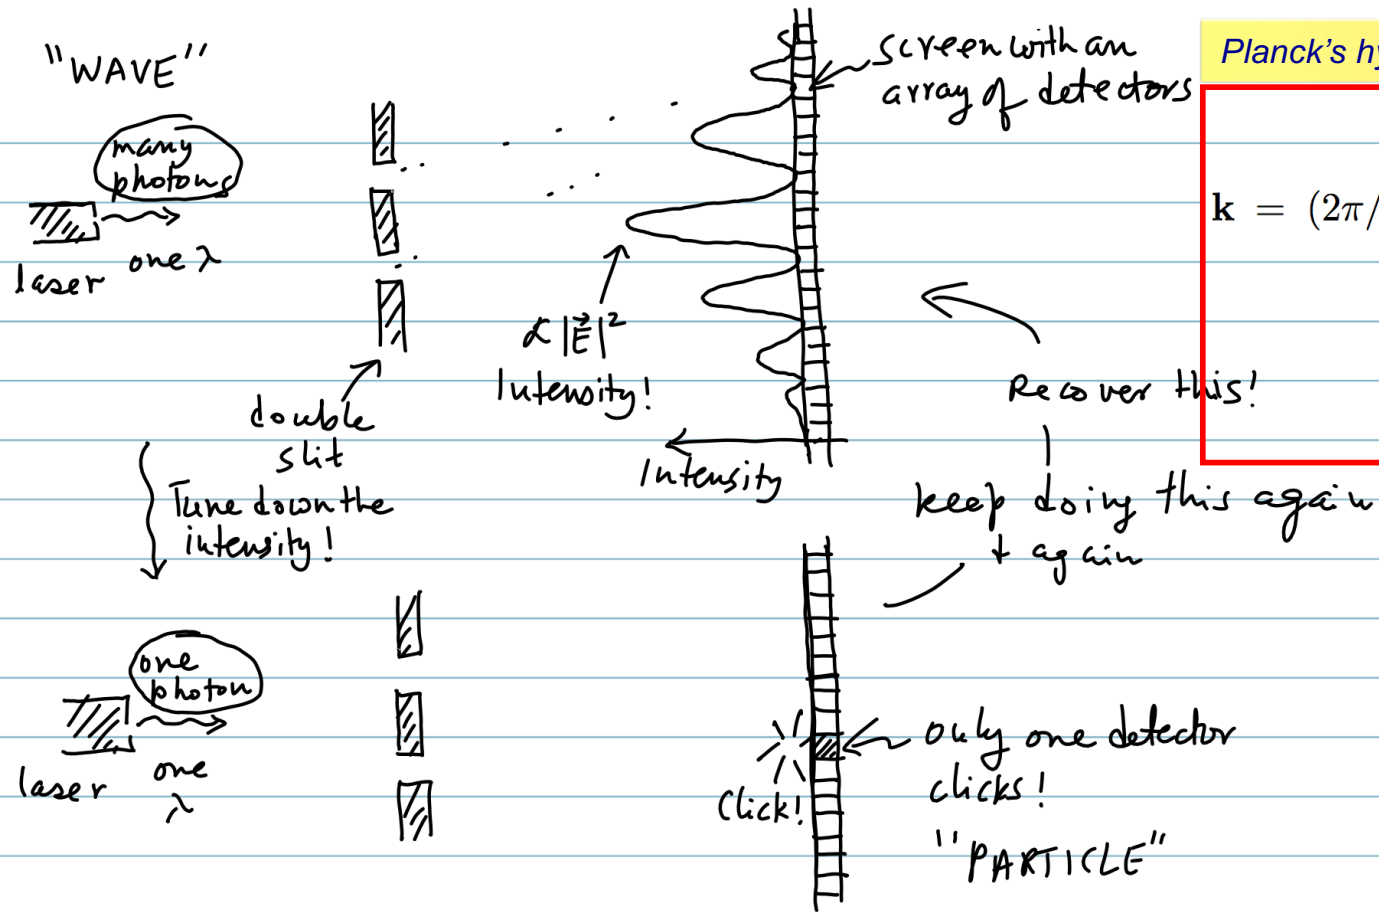 "WAVE"
many
photons
laser
one λ
double
slit
Tune down the
intensity!
∝ |E⃗|²
Intensity!
Intensity
screen with an
array of detectors
Planck's hy
k = (2π/
Recover this!
keep doing this again
+ again
one
photon
laser
one
λ
Click!
only one detector
clicks!
"PARTICLE"